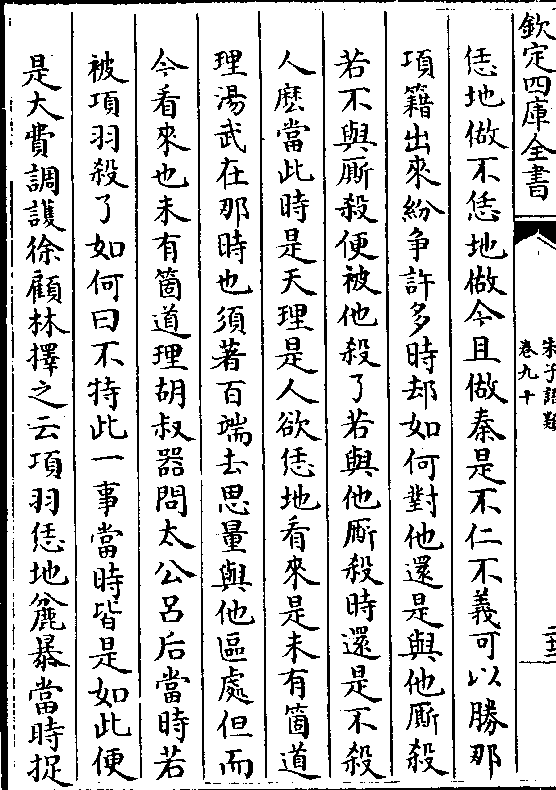 欽定四庫全書
朱子語類
卷九十
恁地做不恁地做今且做秦是不仁不義可以勝那
項籍出來紛争許多時却如何對他還是與他厮殺
若不與厮殺便被他殺了若與他厮殺時還是不殺
人麽當此時是天理是人欲恁地看來是未有箇道
理湯武在那時也須著百端去思量與他區處但而
今看來也未有箇道理胡叔器問太公吕后當時若
被項羽殺了如何曰不特此一事當時皆是如此便
是大費調護徐顧林擇之云項羽恁地麄暴當時捉